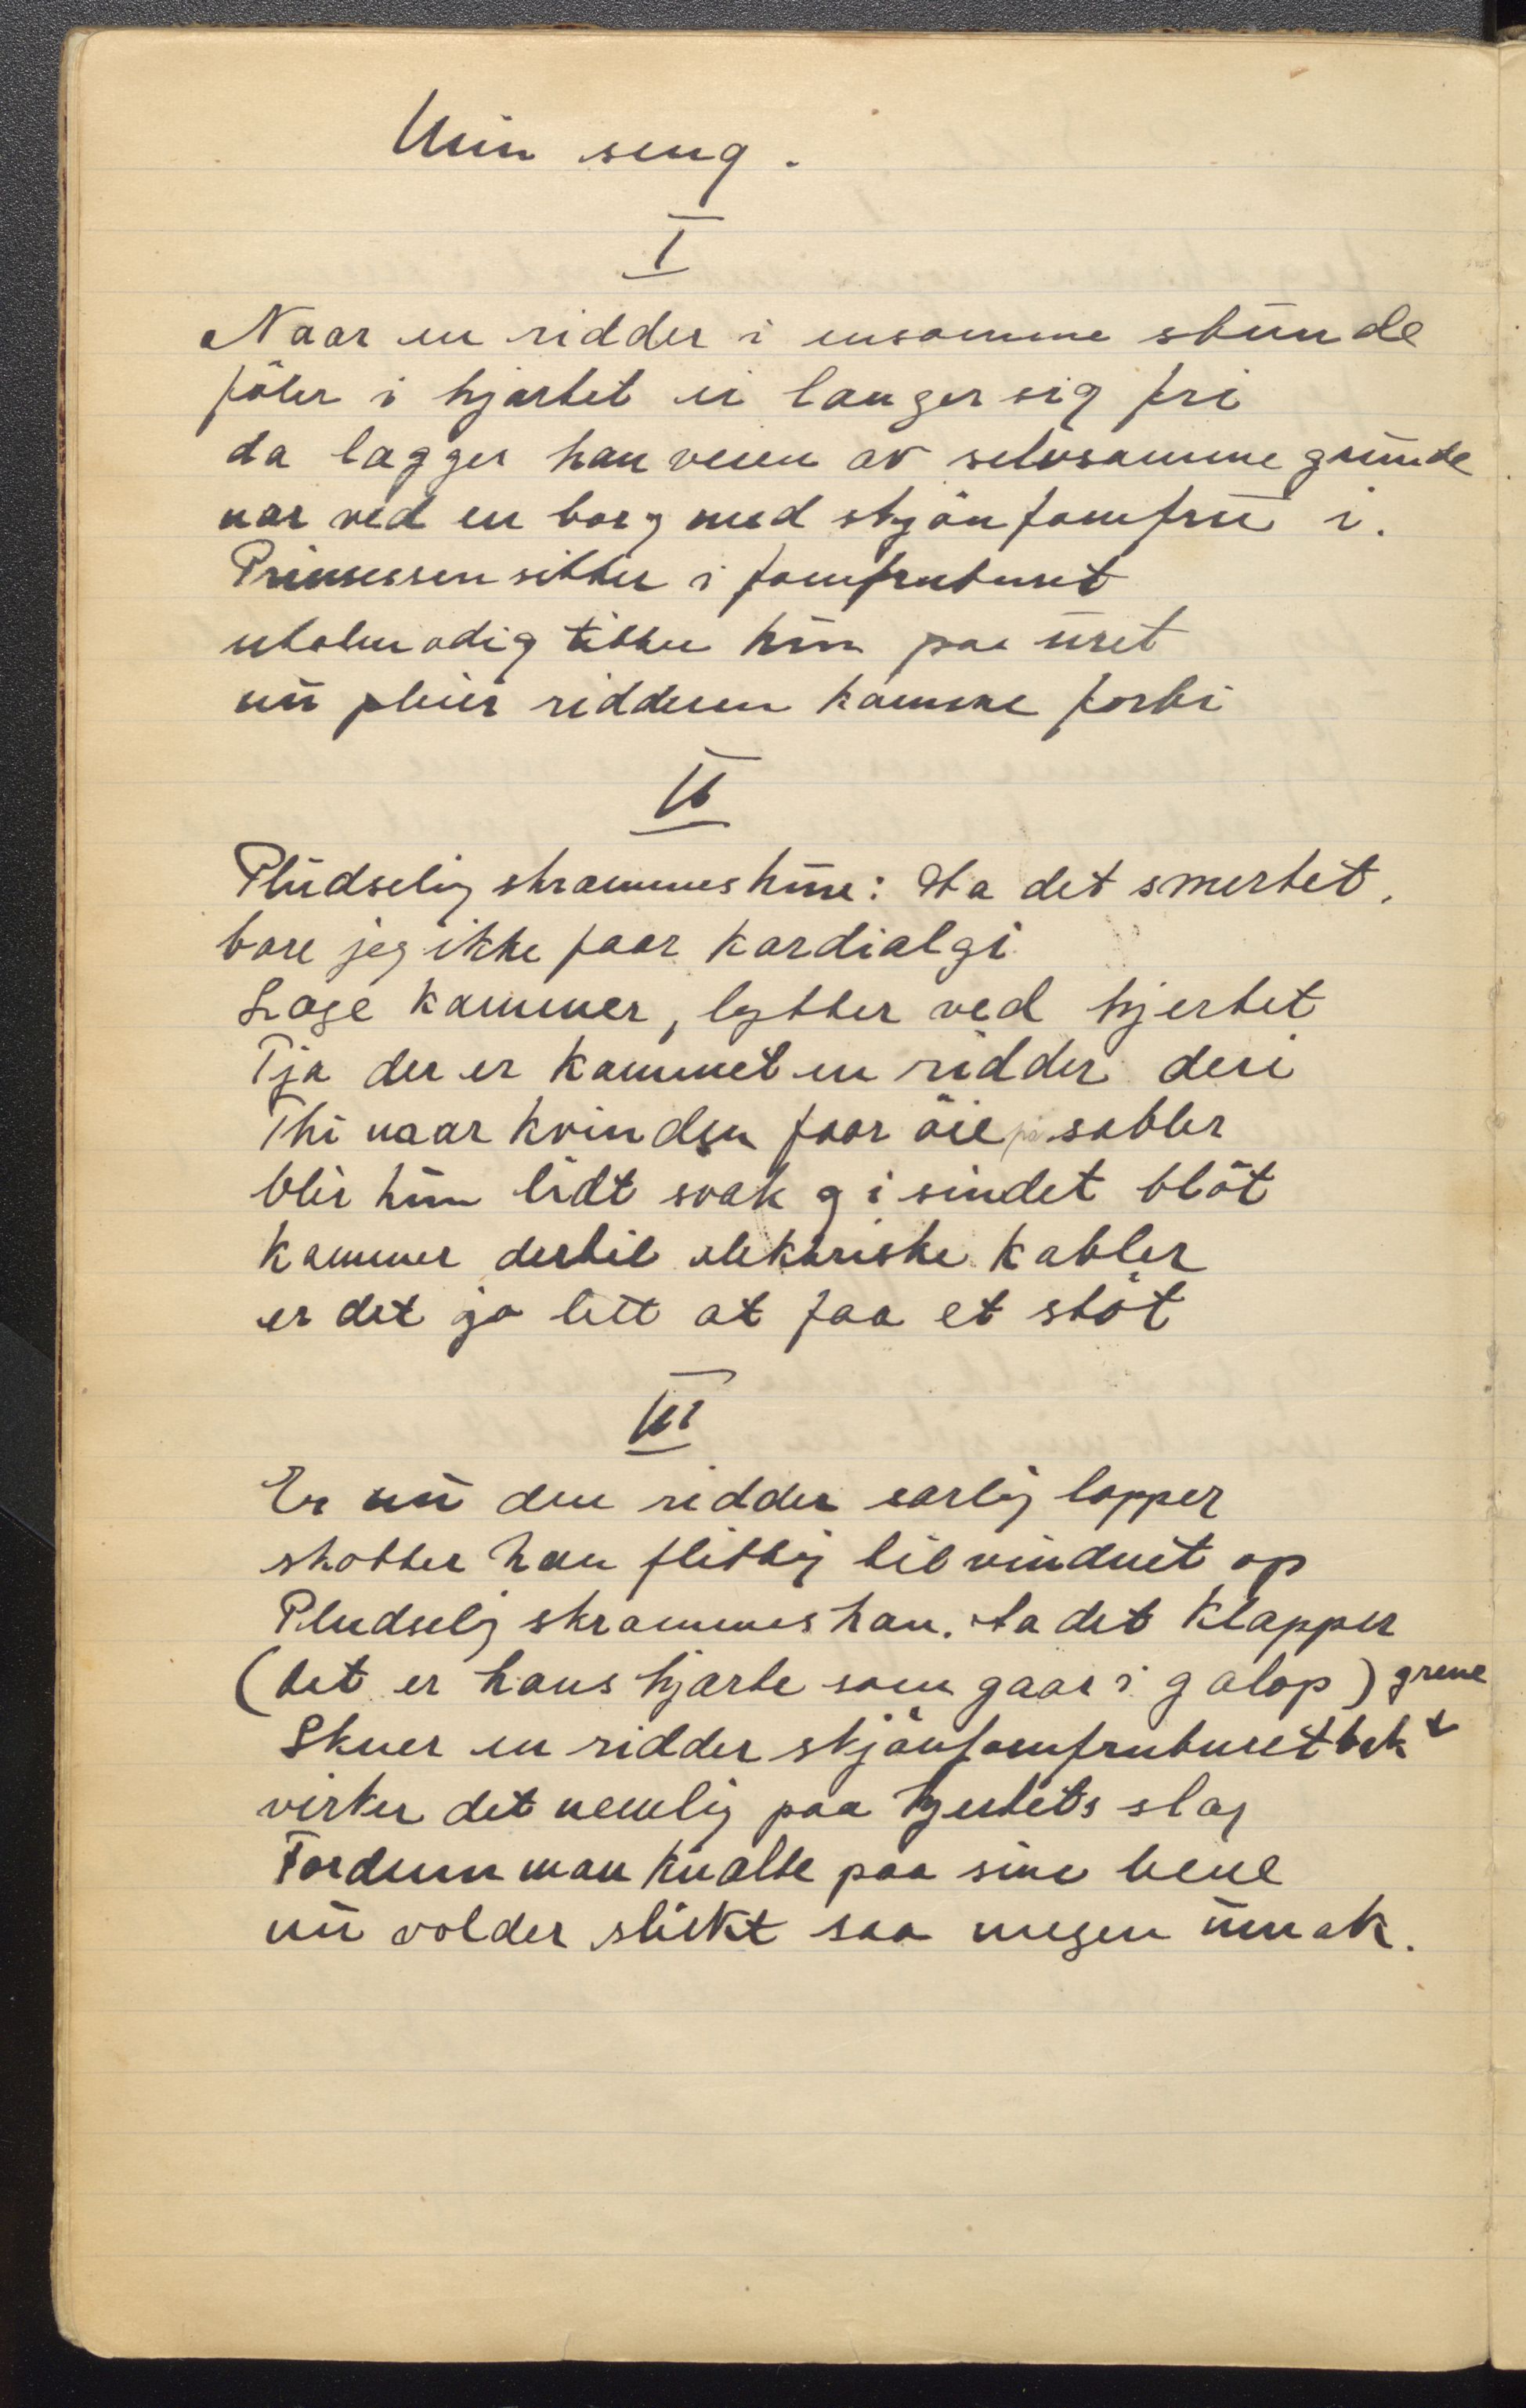 Min seng.
I
Naar en ridder i ensomme stunde
föler i hjartet ei langer sig fri
da lagger han veien av selvsamme grunde
nar ved en borg med skjön jomfru i.
Prinsessen sitter i jomfruburet
utolmodig titter hun paa uret
nu pleier ridderen komme forbi
II
Pludselig skrammes hun: Ha det smertet,
bare jeg ikke faar kardialgi
Lage kommer, lytter ved hjertet
Tja der er kommet en ridder deri
Thi naar kvinden faar öie paa sabler
blir hun lidt svak g i sindet blöt
kommer dertil elektriske kabler
er det jo lett at faa et stöt
III
Er nu den ridder sarlig lapper
skotter han flittig til vinduet op
Pludselig skrammes han. Ha det klapper
(det er hans hjarte som gaar i galop)
Skuer en ridder skjönjomfruburet bak grene
virker det nemlig paa hjertets slag
Fordum man knalte paa sine bene
nu volder slikt saa megen umak.